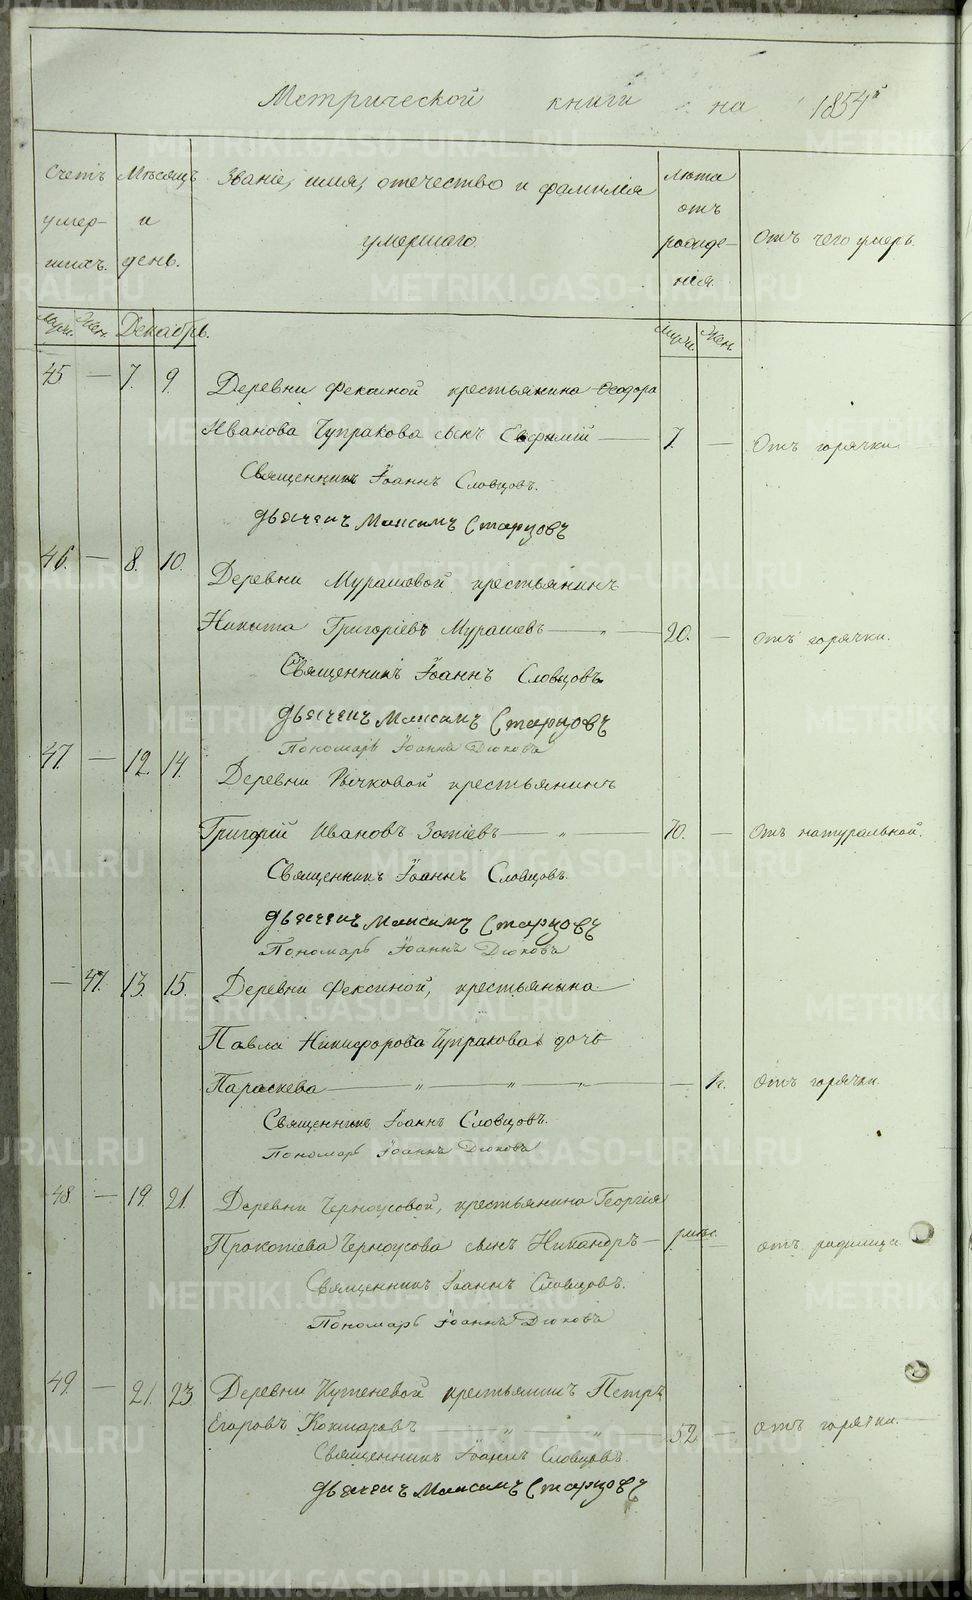 Метрической книги на 1854й
Счетъ умер- шихъ.
Мѣсяцъ и день.
Званіе, имя, отечество и фамилія умершаго.
Лѣта отъ рожде- нія.
Отъ чего умеръ.
Муж. Жен. Декабрь. Муж. Жен.
45 — 7. 9. Деревни Фекиной крестьянина Ѳеодора
Иванова Чупракова сынъ Евфимій — 7. — Отъ горячки
Священникъ Іоаннъ Словцовъ.
Дьячекъ Максимъ Старцовъ
46. — 8. 10. Деревни Мурашовой крестьянинъ
Никита Григоріевъ Мурашевъ — „ — 20. — Отъ горячки.
Священникъ Іоаннъ Словцовъ
Дьячекъ Максимъ Старцовъ
Пономарь Іоаннъ Дюковъ
47. — 12. 14. Деревни Рычковой крестьянинъ
Григорій Ивановъ Зотіевъ — „ — 70. — Отъ натуральной.
Священникъ Іоаннъ Словцовъ.
Дьячекъ Максимъ Старцовъ
Пономарь Іоаннъ Дюковъ
— 47. 13. 15. Деревни Фекиной, крестьянина
Павла Никифорова Чупракова дочь
Параскева — „ — „ — „ — — Отъ горячки.
Священникъ Іоаннъ Словцовъ.
Пономарь Іоаннъ Дюковъ
48 — 19. 21. Деревни Черноусовой, крестьянина Георгія
Прокопіева Черноусова сынъ Никандръ — отъ родимца.
Священникъ Іоаннъ Словцовъ.
Пономарь Іоаннъ Дюковъ
49. — 21. 23. Деревни Кутеневой крестьянинъ Петръ
Егоровъ Кокшаровъ „ „ — 52 — отъ горячки.
Священникъ Іоаннъ Словцовъ.
Дьячекъ Максимъ Старцовъ
METRIKI.GASO-URAL.RU